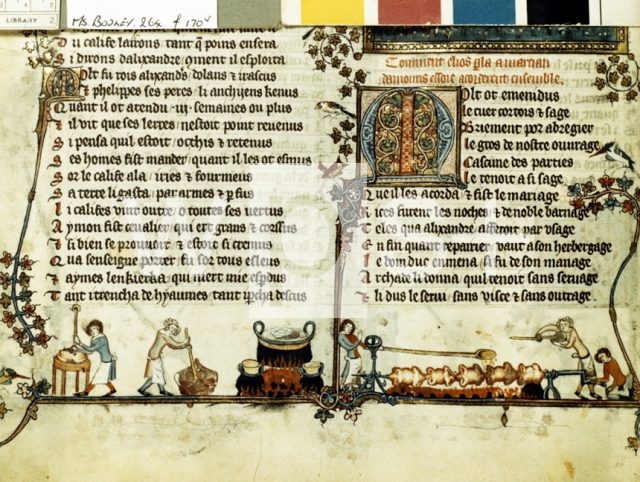 LIBRARY 2
MS. BODLEY, 264 f 170v
Du calife lairons tant q̃ poins en sera
Si dirons dalixandre 9ment il esploita
Molt fu rois alixands dolans & irascus
& phelipes ses peres li anchijens kenus
Quant il ot atendu .iij. semaines ou plus
& il vit que ses letres nestoit point reuenus
Si pensa quil estoit occhis & retenus
Ses homes fist mander quant il les ot
Sor le calife ala iries &
Sa terre li gasta par armes & p̃ fus
Li califes vint outre o toutes ses vertus
Aymon fist ceualier qui ert grans & corssus
& si bien se prouuoit & estoit si cremus
Qua senseigne porter fu sor tous esleus
Tant itrencha de hyaumes tant
Comment elios
damours
Molt ot emenidus
le cuer cortois & sage
Briement por abregier
le gros de nostre ouurage
Cascune des parties
le tenoit a si sage
Que il les acorda & fist le mariage
Rices furent les noches & de noble barnage
Teles qua alixandre afferoit par vsage
En fin quant repairier vaut a son herbergage
le don duc enmena si fu de son manage
Archade li donna quil tenoit sans seruage
& li dus le serui sans visce & sans outrage